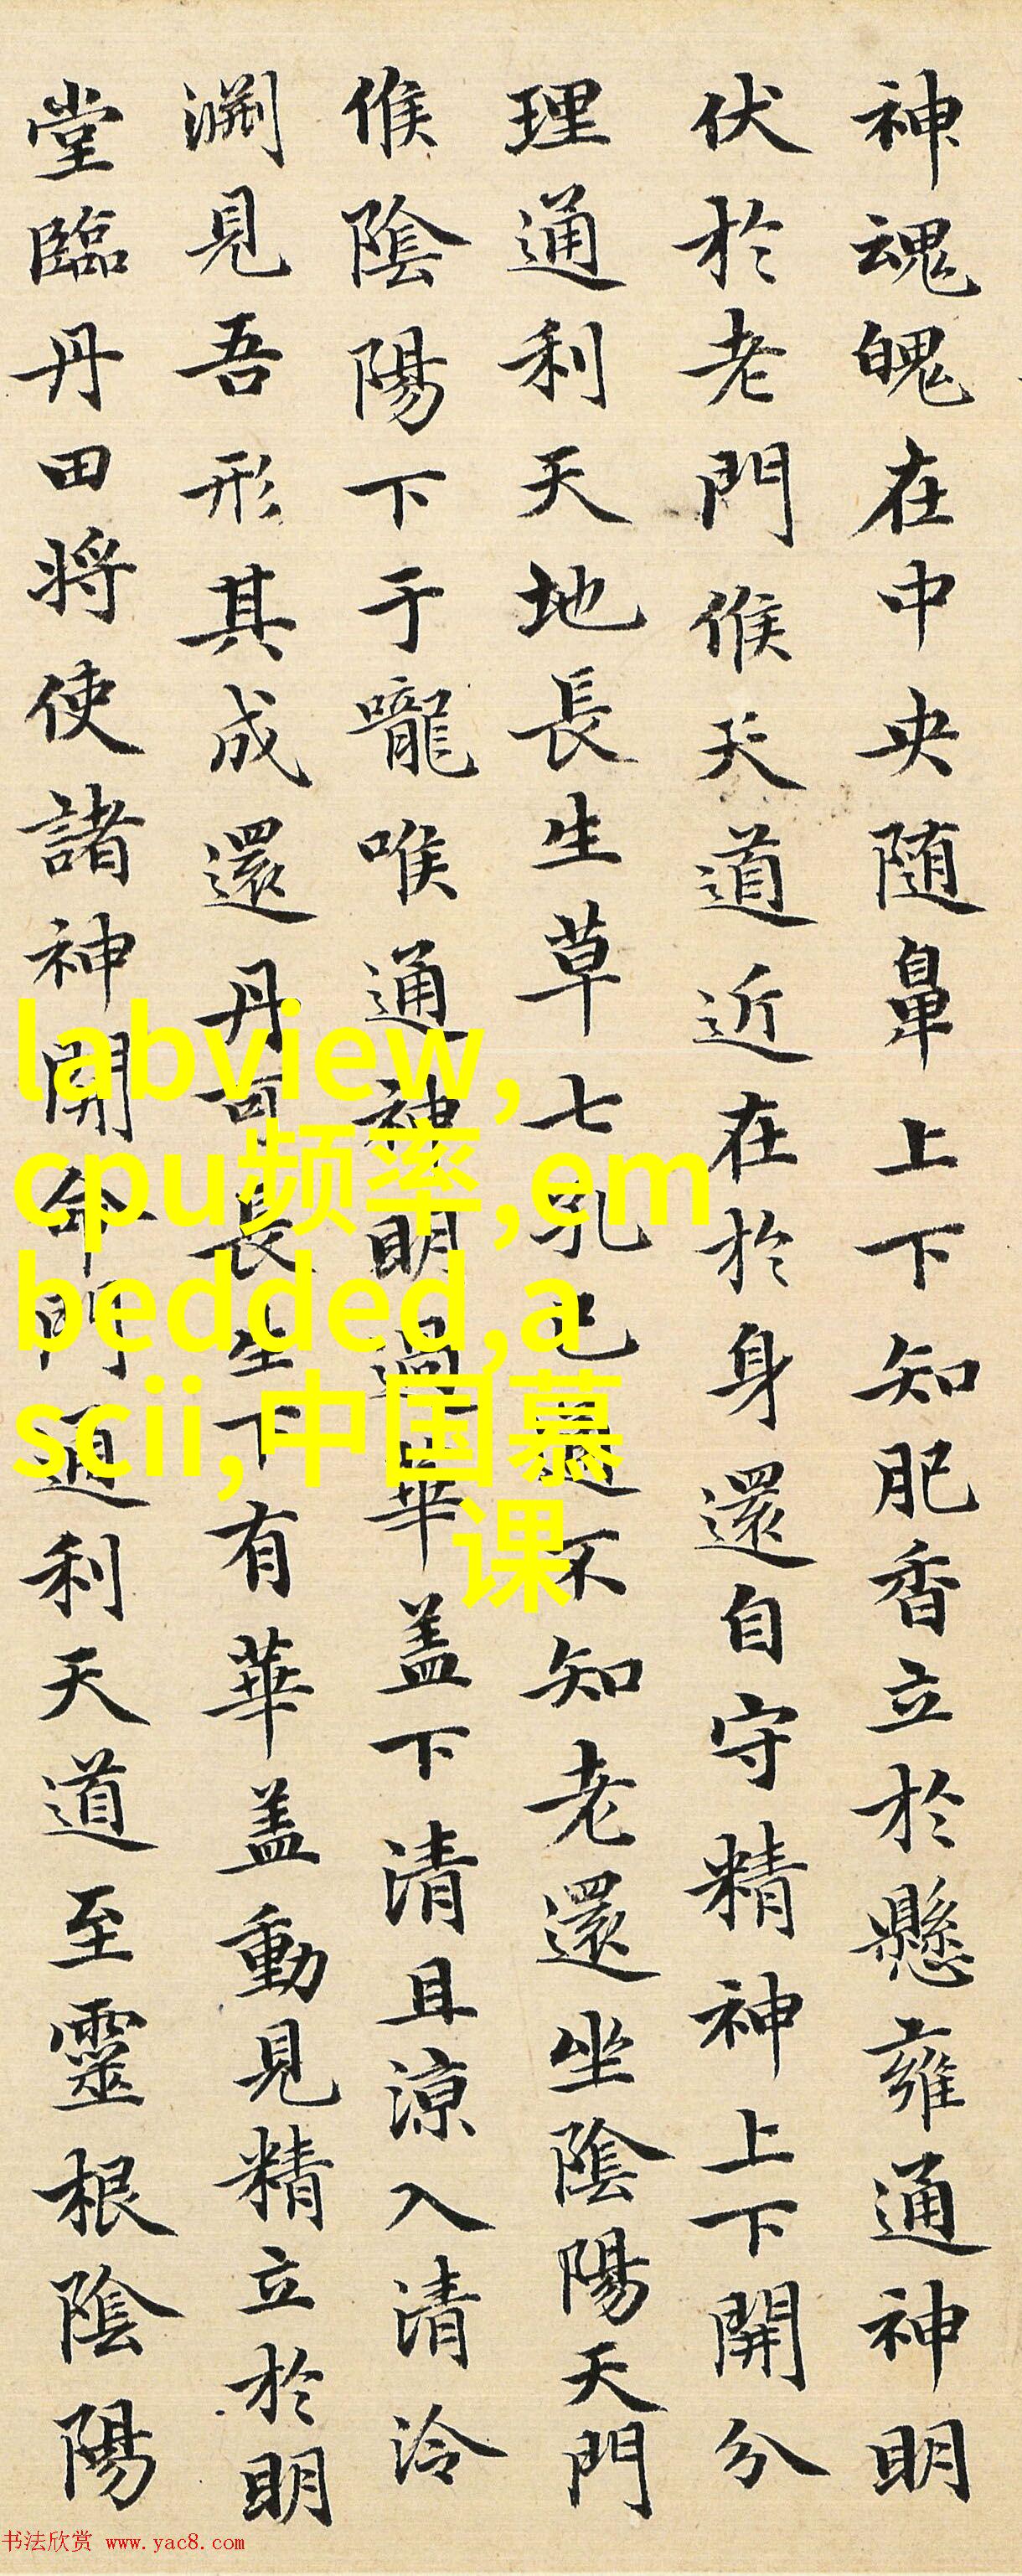 神魂魄在中央随鼻上下知肥香立於懸雍通神明
伏於老門候天道近在於身還自守精神上下開分
理通利天地長生草七孔已通不知老還坐陰陽天門
候陰陽下于嚨喉通神明過華盖下清且涼入清泠
淵見吾形其成還丹可長生下有華盖動見精立於明
堂臨丹田将使諸神開命門通利天道至靈根陰陽
labview,
cpu频率,em
bedded,a
scii,中国慕
课
书法欣赏 www.yac8.com